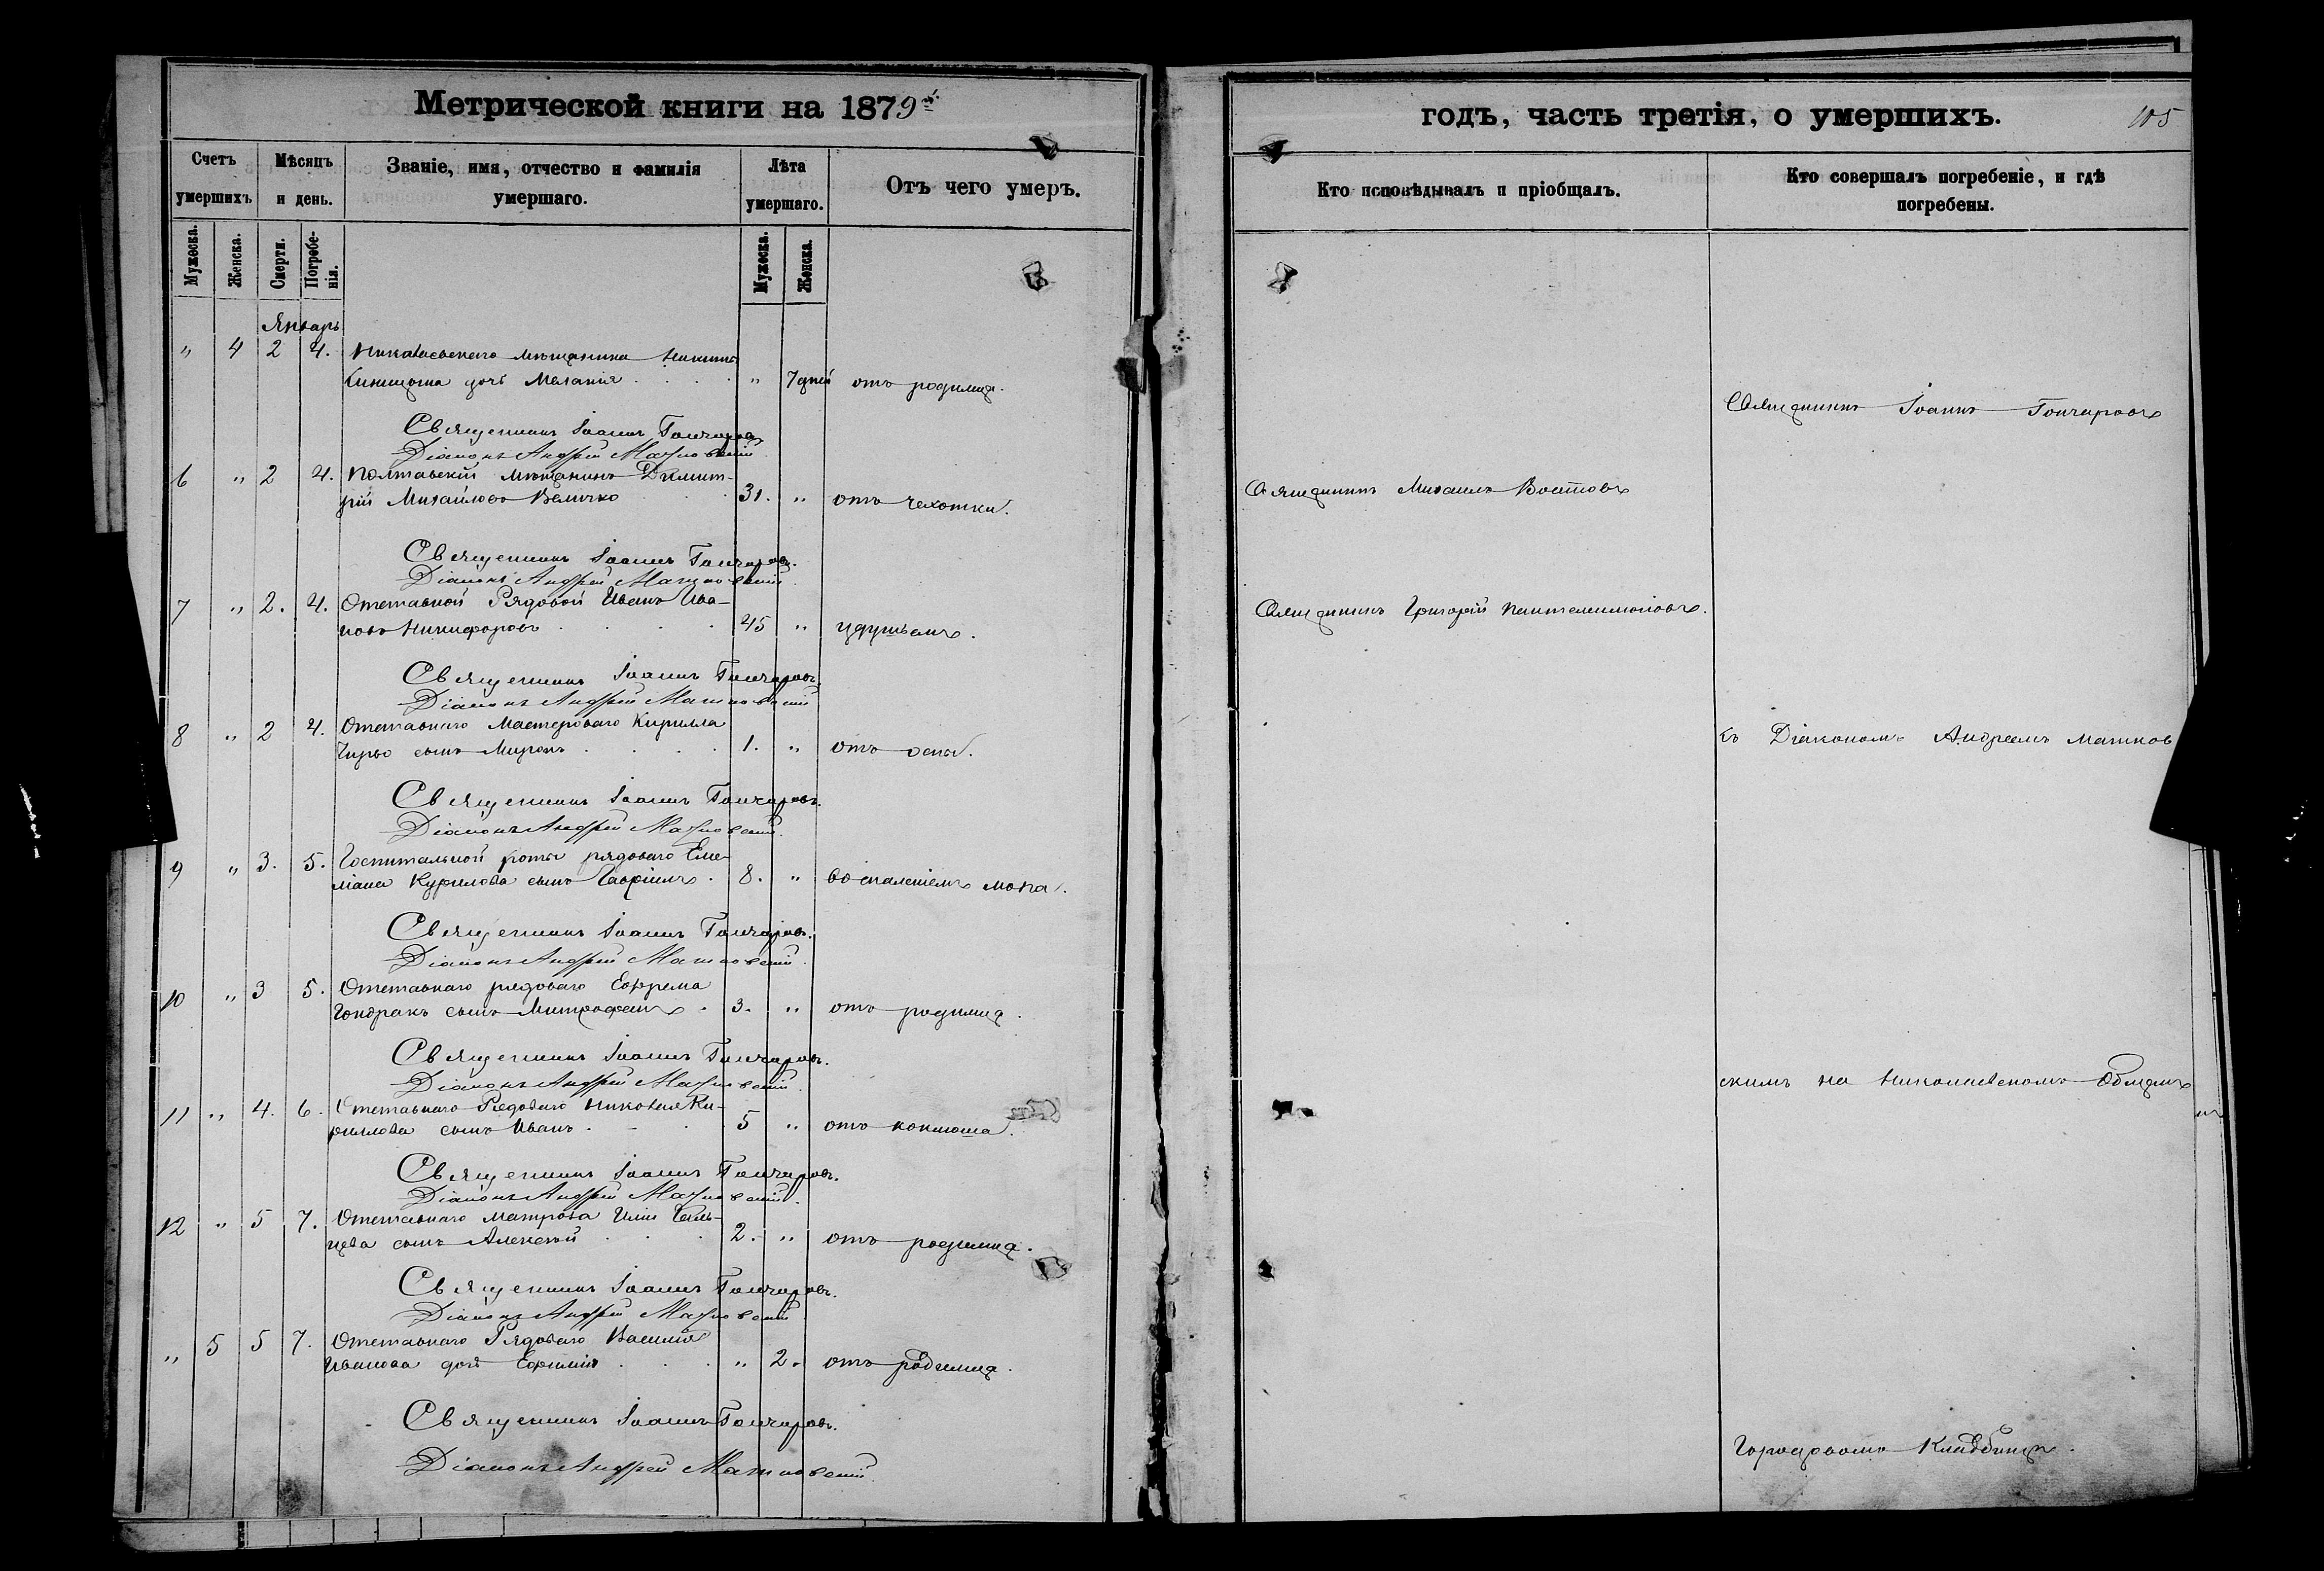 Метрической книги на 1879й
годъ, часть третія, о умершихъ.
105
Счетъ умершихъ
Мѣсяцъ и день.
Званіе, имя, отчество и фамилія умершаго.
Лѣта умершаго.
Отъ чего умеръ.
Кто исповѣдывалъ и пріобщалъ.
Кто совершалъ погребеніе, и гдѣ погребены.
Мужеска.
Женска.
Смерти.
Погребенія.
Мужеска.
Женска.
Январь
" 4 2 4. Николаевскаго мѣщанина Никиты
дочь Меланія . . . . " 7 дней отъ родимца.
Священникъ Іоаннъ Гончаровъ
Священникъ Іоаннъ Гончаровъ
Діаконъ Андрей Матковскій
6 " 2 4. Полтавскій мѣщанинъ Димит-
рій Михайловъ Величко . . 31. " отъ чехотки.
Священникъ Михаилъ
Священникъ Іоаннъ Гончаровъ.
Діаконъ Андрей Матковскій
7 " 2. 4. Отставной Рядовой Иванъ Ива-
новъ Никифоровъ . . . . 45 " удушьемъ.
Священникъ Григорій Пантелимоновъ.
Священникъ Іоаннъ Гончаровъ.
Діаконъ Андрей Матковскій
8 " 2 4. Отставнаго Мастероваго Кирилла
сынъ Миронъ . . . . 1. " отъ оспы.
съ Діакономъ Андреемъ Матков
Священникъ Іоаннъ Гончаровъ.
Діаконъ Андрей Матковскій
9 " 3. 5. Госпитальной роты рядоваго Еме-
ліана Курилова сынъ Гавріилъ . 8. " воспаленіемъ мозга.
Священникъ Іоаннъ Гончаровъ.
Діаконъ Андрей Матковскій
10 " 3 5. Отставнаго рядоваго Ефрема
Гондракъ сынъ Митрофанъ . 3. " отъ родимца.
Священникъ Іоаннъ Гончаровъ.
Діаконъ Андрей Матковскій
скимъ на Николаевскомъ
11 " 4. 6. Отставнаго Рядоваго Николая Ки-
рилова сынъ Иванъ . . . 5 " отъ коклюша.
Священникъ Іоаннъ Гончаровъ.
Діаконъ Андрей Матковскій.
12 " 5 7. Отставнаго матроса Иліи
сынъ Алексѣй . . . 2. " отъ родимца.
Священникъ Іоаннъ Гончаровъ.
Діаконъ Андрей Матковскій
" 5 5 7. Отставнаго Рядоваго Василія
Иванова дочь Ефимія . . . " 2. отъ родимца.
Священникъ Іоаннъ Гончаровъ.
Городскомъ Кладбищѣ.
Діаконъ Андрей Матковскій.